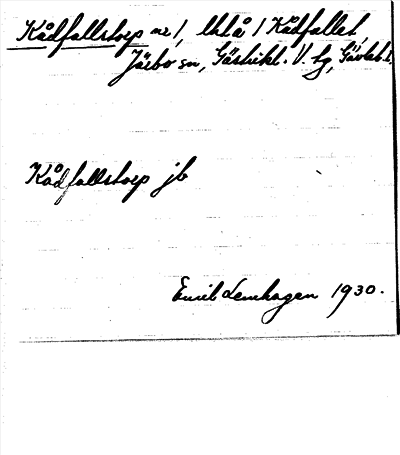 Kådfallstorp nr 1, lhlå 1 Kådfallet,
Järbo sn, Gästrikl. V. tg, Gävleb. l.
Kådfallstorp jb
Emil Lenhagen 1930.